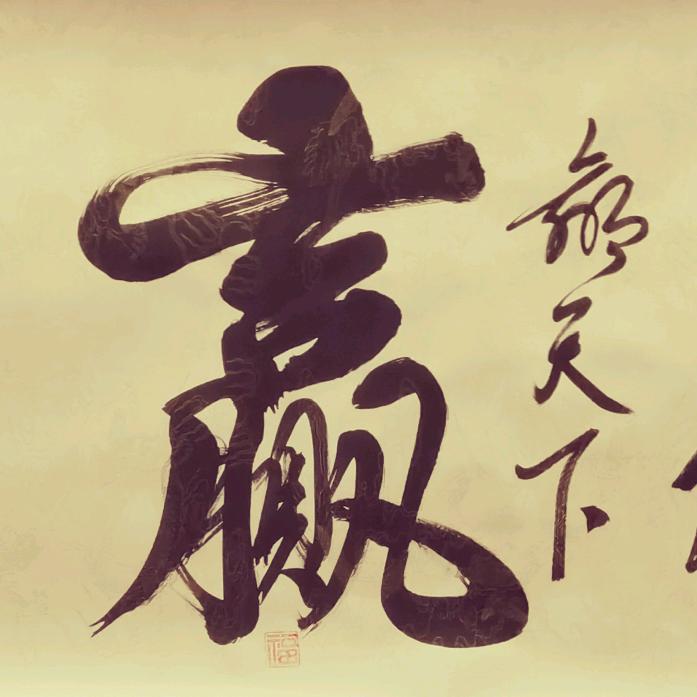 赢
赢天下
福